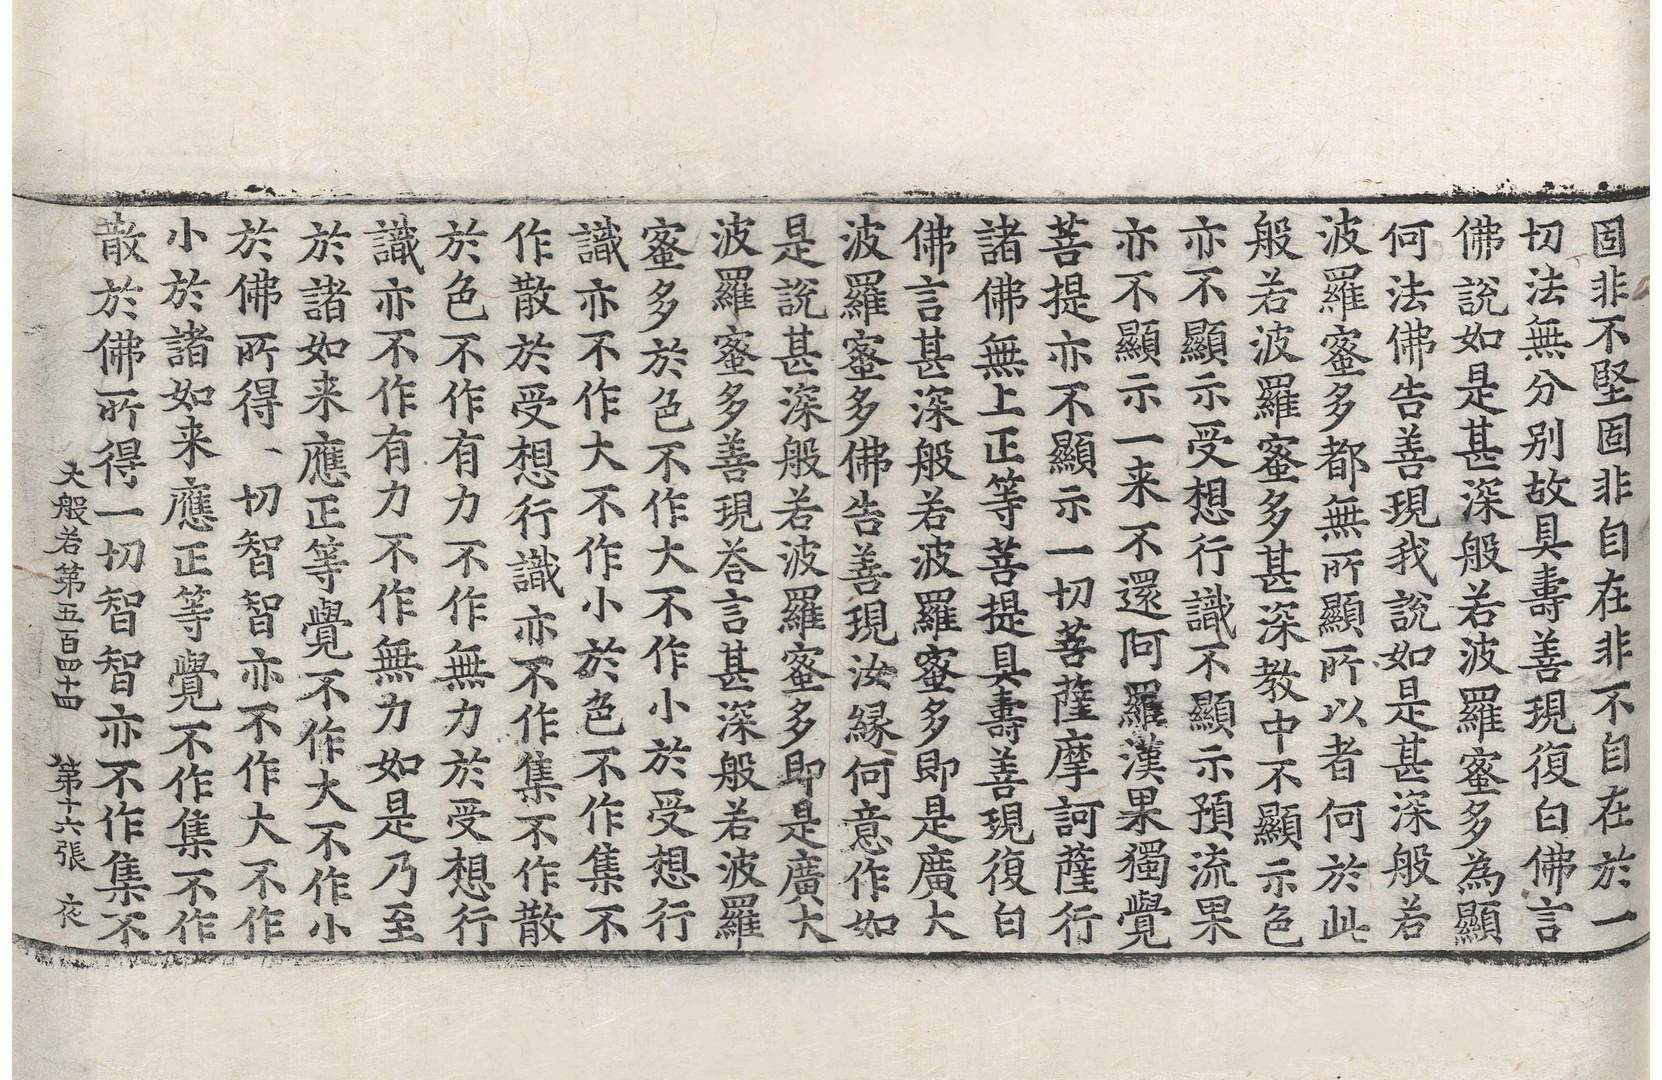 固非不堅固非自在非不自在於一
切法無分别故具壽善現復白佛言
佛說如是甚深般若波羅蜜多為顯
何法佛告善現我說如是甚深般若
波羅蜜多都無所顯所以者何於此
般若波羅蜜多甚深教中不顯示色
亦不顯示受想行識不顯示預流果
亦不顯示一来不還阿羅漢果獨覺
菩提亦不顯示一切菩薩摩訶薩行
諸佛無上正等菩提具壽善現復白
佛言甚深般若波羅蜜多即是廣大
波羅蜜多佛告善現汝緣何意作如
是說甚深般若波羅蜜多即是廣大
波羅蜜多善現荅言甚深般若波羅
蜜多於色不作大不作小於受想行
識亦不作大不作小於色不作集不
作散於受想行識亦不作集不作散
於色不作有力不作無力於受想行
識亦不作有力不作無力如是乃至
於諸如来應正等覺不作大不作小
於佛所得一切智智亦不作大不作
小於諸如来應正等覺不作集不作
散於佛所得一切智智亦不作集不
大般若第五百四十四 第十六張 夜